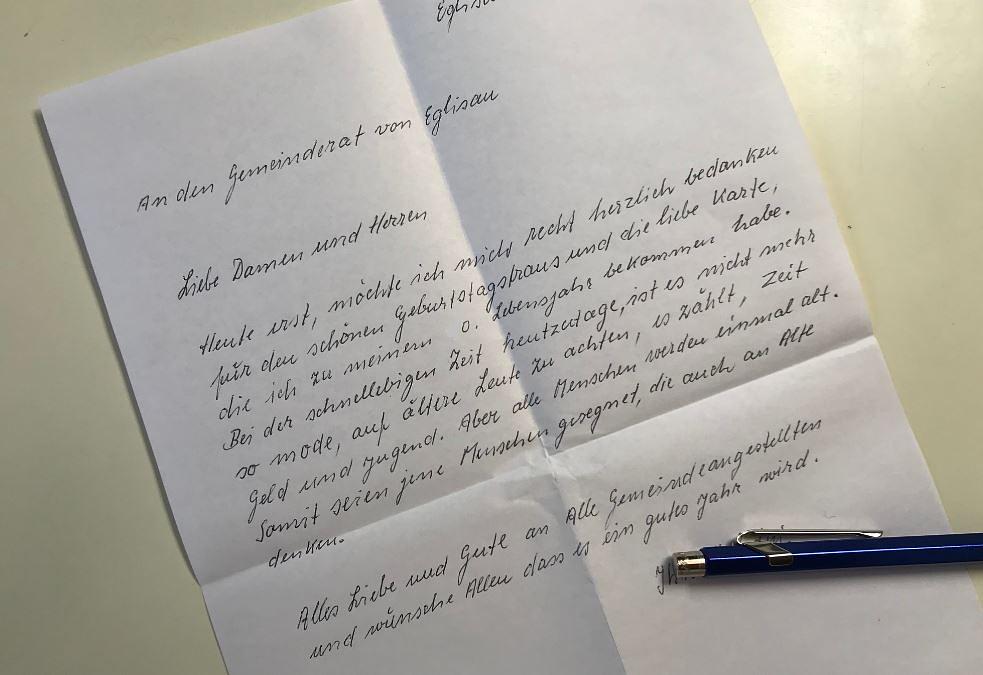 An den Gemeinderat von Eglisau
Liebe Damen und Herren
Heute erst, möchte ich mich recht herzlich bedanken
für den schönen Geburtstagstraus und die liebe Karte,
die ich zu meinem 0. Lebensjahr bekommen habe.
Bei der schnellebigen Zeit heutzutage, ist es nicht mehr
so mode, auf ältere Leute zu achten, es zählt, Zeit
Geld und Jugend. Aber alle Menschen werden einmal alt.
Somit seien jene Menschen gesegnet, die auch an Alte
denken.
Alles Liebe und Gute an Alle Gemeindeangestellten
und wünsche Allen dass es ein gutes Jahr wird.